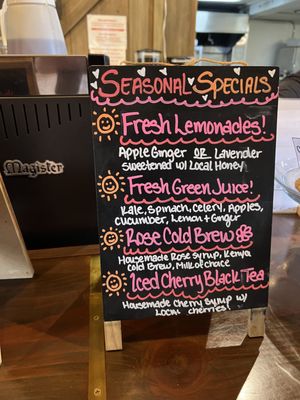 Seasonal Specials
Fresh Lemonades!
Apple Ginger OR Lavender
sweetened w/ Local Honey
Fresh Green Juice!
Kale, Spinach, Celery, Apples,
cucumber, Lemon + Ginger
Rose Cold Brew
Housemade Rose syrup, Kenya
Cold Brew, Milk of choice
Iced Cherry Black Tea
Housemade Cherry Syrup w/
Local cherries!
Magister